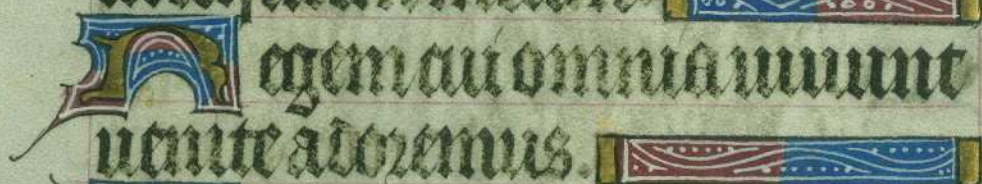 Regem cui omnia uiuunt
uenite adoremus.